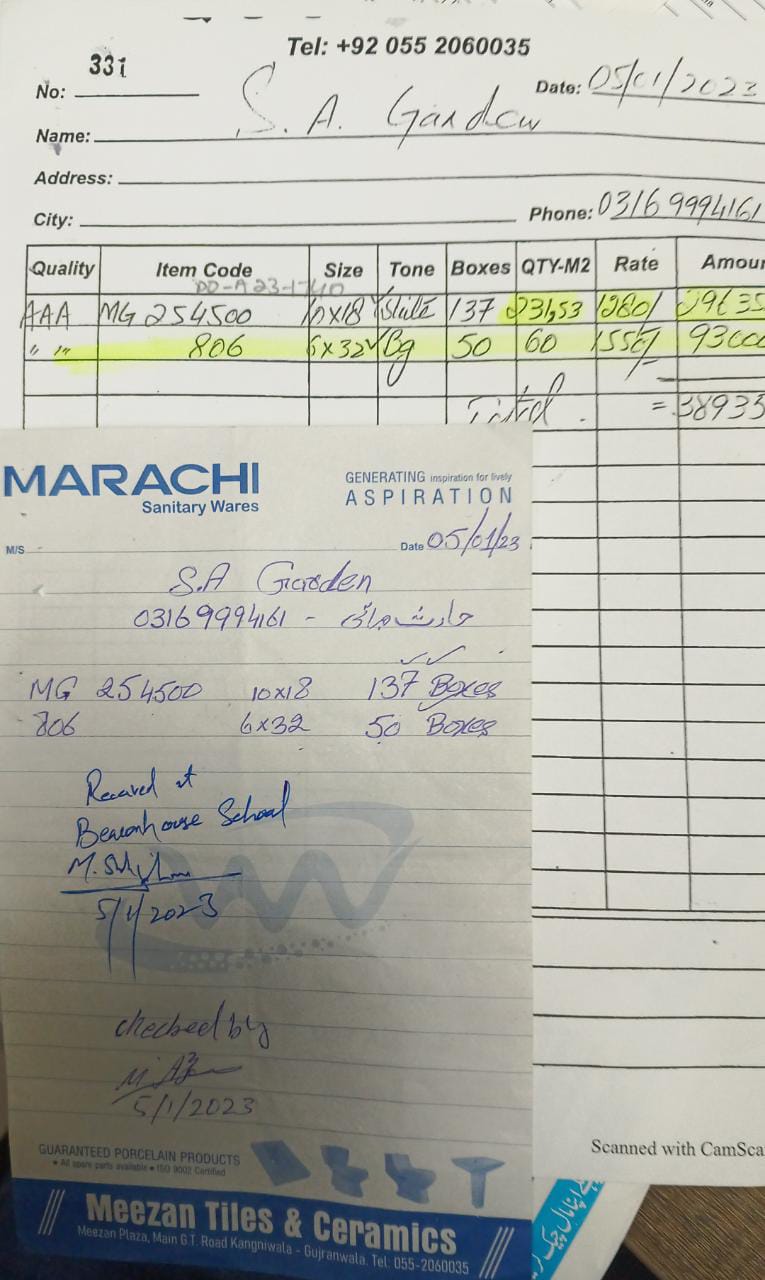 Tel: +92 055 2060035
No: 331
Date: 05/01/2023
Name: S. A. Garden
Address:
City:
Phone: 03169994161
Quality Item Code Size Tone Boxes QTY-M2 Rate Amou
DD-A 23-1740
AAA MG 254500 10x18 137 231,53 1280/ 29635
" " 806 6x32 Bg 50 60 1550/ 93000
Total = 38935
MARACHI
Sanitary Wares
GENERATING inspiration for lively
ASPIRATION
M/S
Date 05/01/23
S.A Garden
03169994161 -
MG 254500 10x18 137 Boxes
806 6x32 50 Boxes
Received at
Beaconhouse School
5/1/2023
checked by
5/1/2023
GUARANTEED PORCELAIN PRODUCTS
• All spare parts available • ISO 9002 Certified
Scanned with CamSca
Meezan Tiles & Ceramics
Meezan Plaza, Main G.T. Road Kangniwala - Gujranwala. Tel: 055-2060035